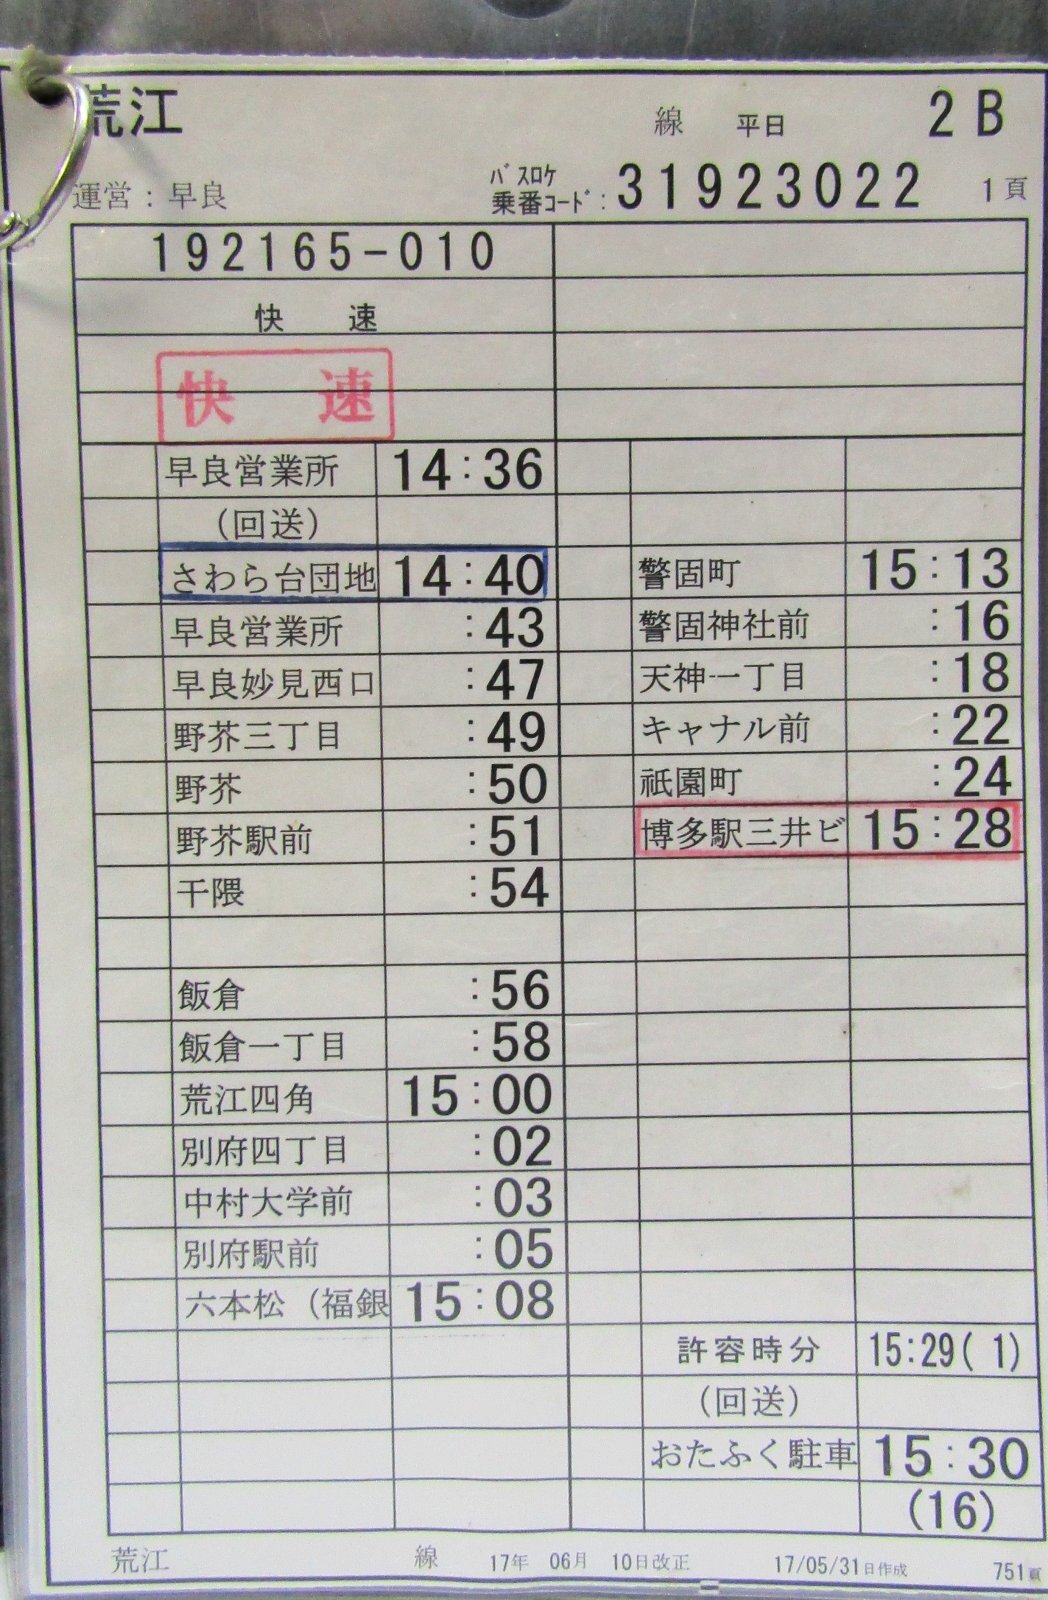 荒江 線 平日 2B
運営：早良 ﾊﾞｽﾛｹ 乗番ｺｰﾄﾞ：31923022 1頁
192165-010
快 速
快 速
早良営業所 14:36
（回送）
さわら台団地 14:40
早良営業所 :43
早良妙見西口 :47
野芥三丁目 :49
野芥 :50
野芥駅前 :51
干隈 :54
飯倉 :56
飯倉一丁目 :58
荒江四角 15:00
別府四丁目 :02
中村大学前 :03
別府駅前 :05
六本松（福銀 15:08
警固町 15:13
警固神社前 :16
天神一丁目 :18
キャナル前 :22
祇園町 :24
博多駅三井ビ 15:28
許容時分 15:29( 1)
（回送）
おたふく駐車 15:30
(16)
荒江 線 17年 06月 10日改正 17/05/31日作成 751頁